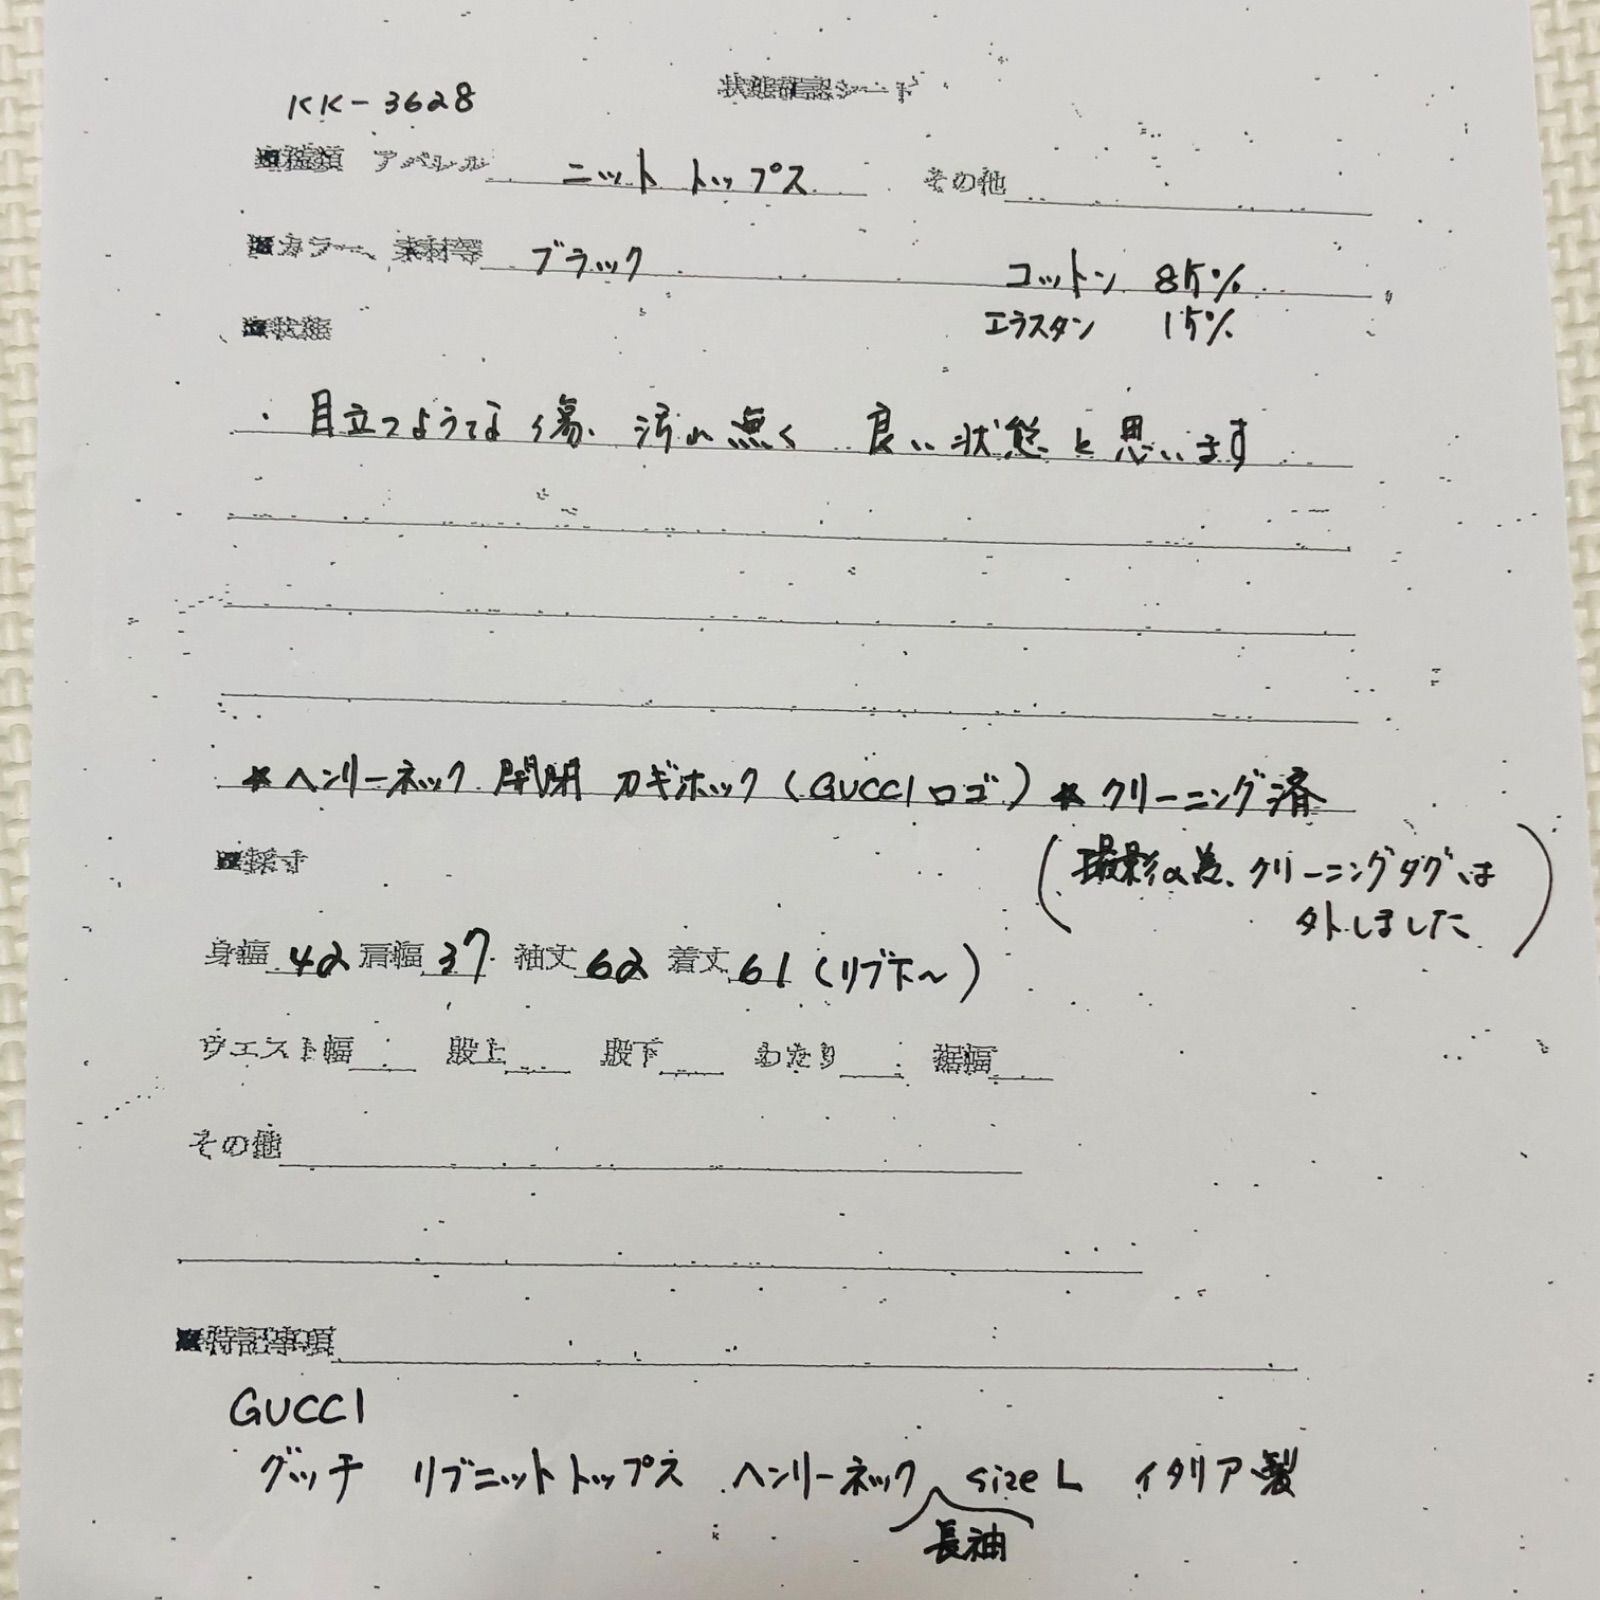 状態確認シート
KK-3628
■種類 アパレル ニット トップス その他
■カラー、素材等 ブラック コットン 85%
エラスタン 15%
■状態
・目立つような傷、汚れ無く 良い状態と思います
★ヘンリーネック 開閉 カギホック(GUCCIロゴ) ★クリーニング済
(撮影の為、クリーニングタグは
外しました)
■採寸
身幅 42 肩幅 37 袖丈 62 着丈 61 (リブ下〜)
ウエスト幅 股上 股下 わたり 裾幅
その他
■特記事項
GUCCI
グッチ リブニットトップス ヘンリーネック size L イタリア製
長袖